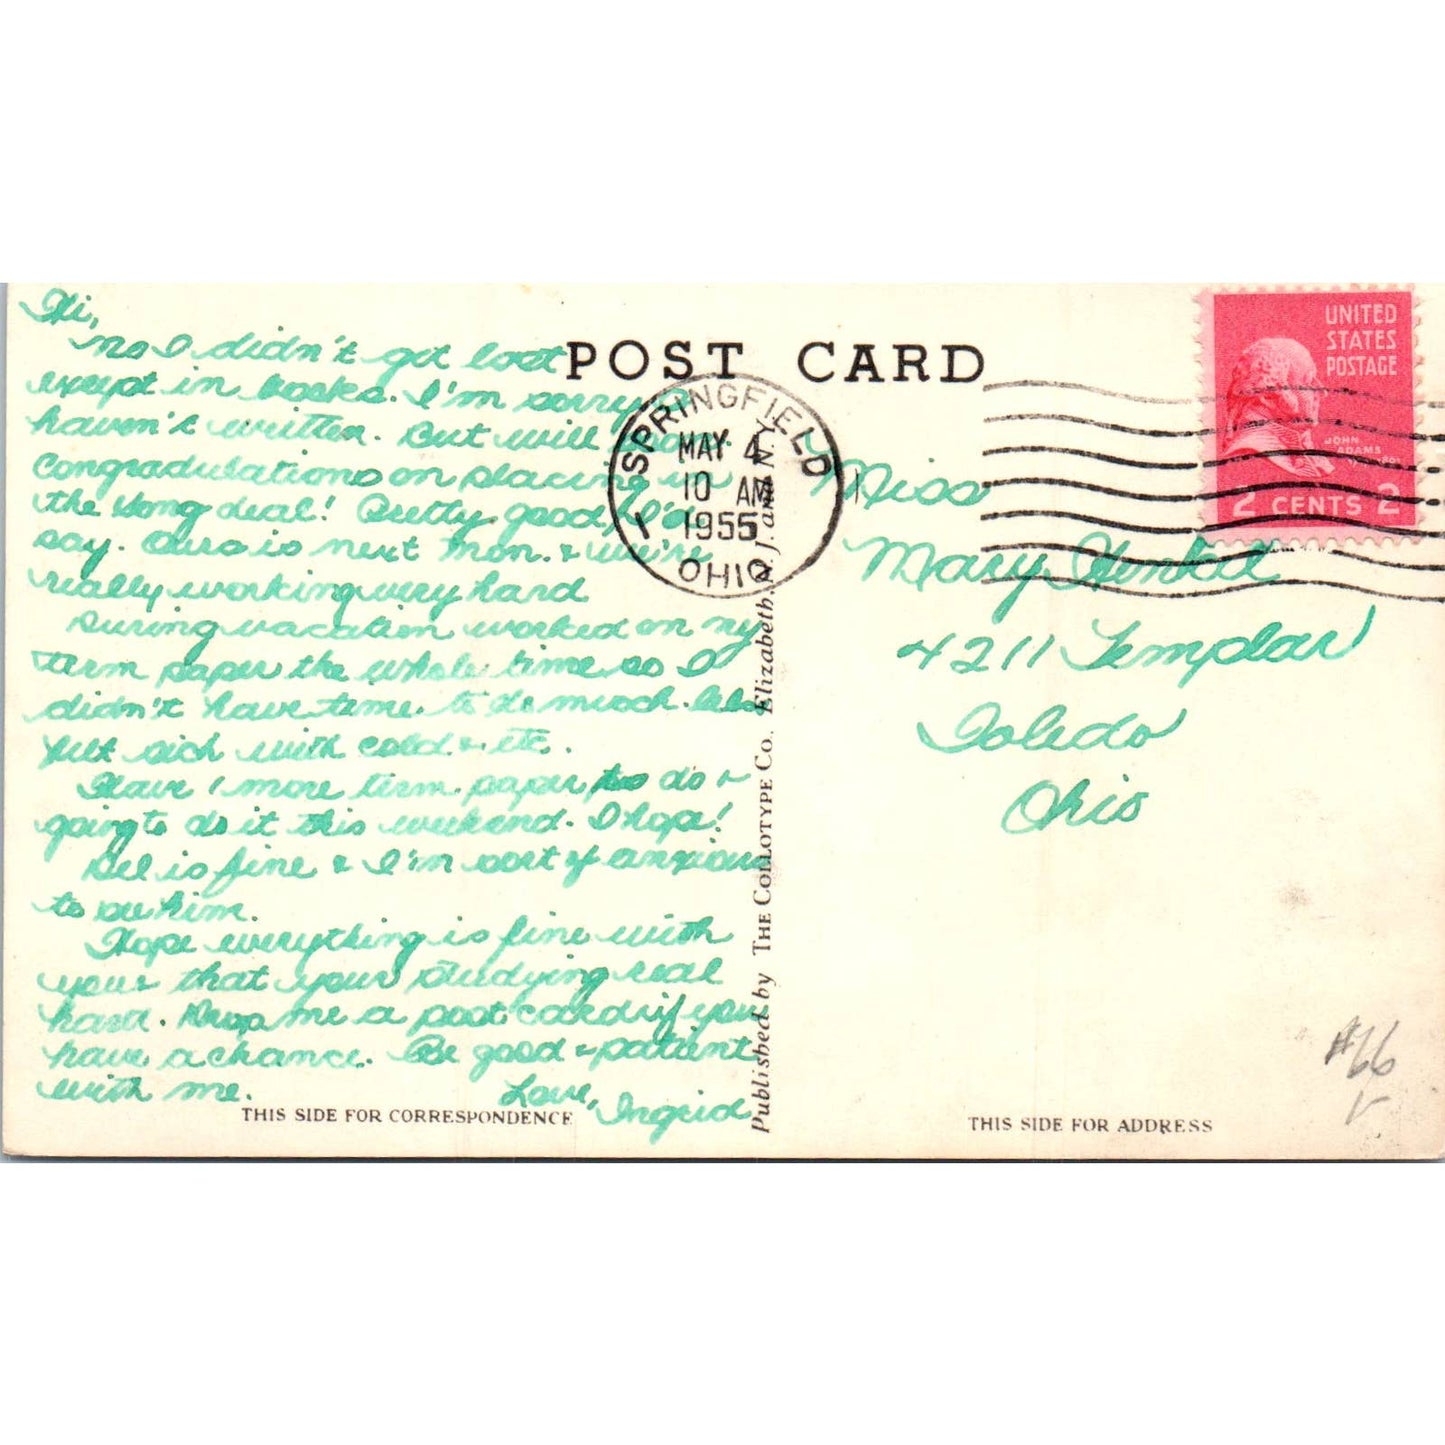 Hi,
no I didn't get lost
except in books. I'm sorry I
haven't written. But will now.
Congradulations on placing in
the song deal! Pretty good, I'd
say. Ours is next Mon. & we're
really working very hard
During vacation worked on my
term paper the whole time so I
didn't have time to do much. Also
felt sick with cold & etc.
Have 1 more term paper to do &
going to do it this weekend. I hope!
Del is fine & I'm sort of anxious
to see him.
Hope everything is fine with
you & that your studying real
hard. Drop me a post card if you
have a chance. Be good & patient
with me.
Love,
Ingrid
THIS SIDE FOR CORRESPONDENCE
POST CARD
SPRINGFIELD
1
MAY 4
10 AM
1955
OHIO
Published by THE COLLOTYPE CO. Elizabeth, N. J. and N. Y.
1
UNITED
STATES
POSTAGE
JOHN
ADAMS
2 CENTS 2
Miss
Mary
4211 Templar
Toledo
Ohio
#66
THIS SIDE FOR ADDRESS